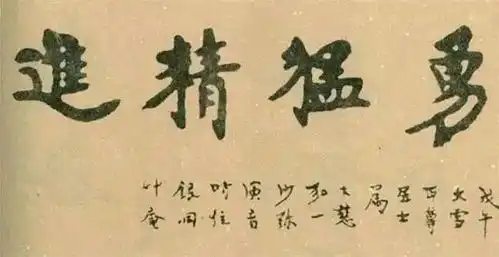 勇猛精進
戊午
大雪
丏尊
居士
屬
大慈
弘一
沙弥
演音
時住
銀洞
艸庵